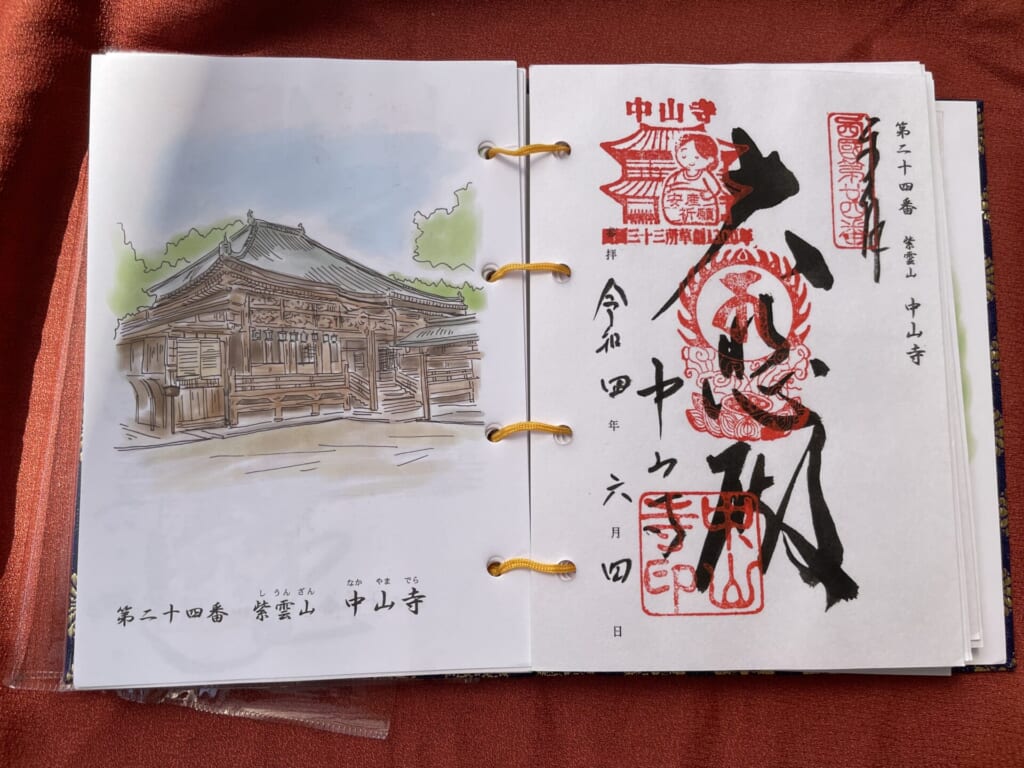 し うん ざん なか やま でら
第二十四番 紫雲山 中山寺
第二十四番 紫雲山 中山寺
西國第廿四番
中山寺
安産
祈願
西国三十三所草創1300年
大悲
中山寺
中山寺印
拝
令和四年六月四日